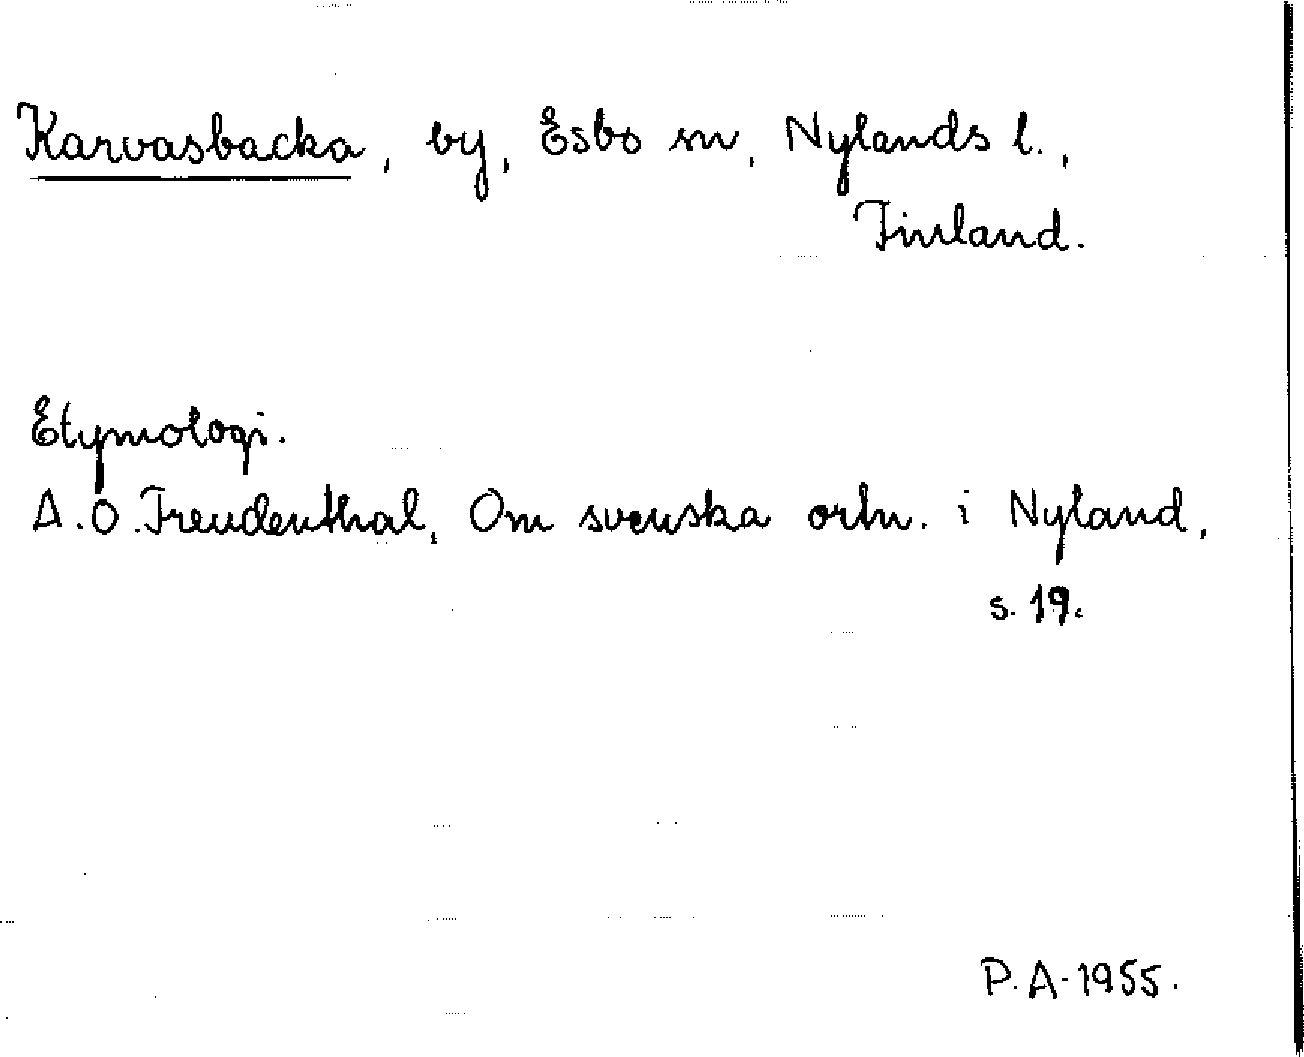 Karvasbacka, by, Esbo sn, Nylands l.,
Finland.
Etymologi.
A.O. Freudenthal, Om svenska ortn. i Nyland,
s. 19.
P.A. 1955.